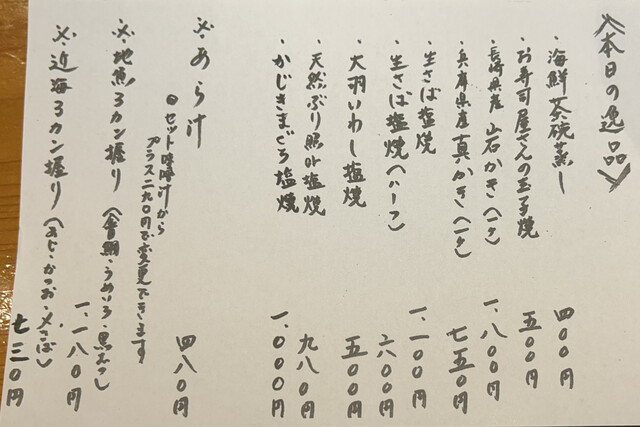 《本日の逸品》
・海鮮茶碗蒸し 四〇〇円
・お寿司屋さんの玉子焼 五〇〇円
・長崎県産 岩石かき(一ケ) 一、八〇〇円
・兵庫県産 真かき(一ケ) 七五〇円
・生さば塩焼 一、一〇〇円
・生さば塩焼(ハーフ) 六〇〇円
・大羽いわし塩焼 五〇〇円
・天然ぶり照or塩焼 九八〇円
・かじきまぐろ塩焼 一、〇〇〇円
※・あら汁 四八〇円
◎セット味噌汁から
プラス二九〇円で変更できます
※・地魚3カン握り 一、一八〇円
・うめいろ・黒むつ)
※・近海3カン握り(あじ・かつお・〆さば) 七三〇円